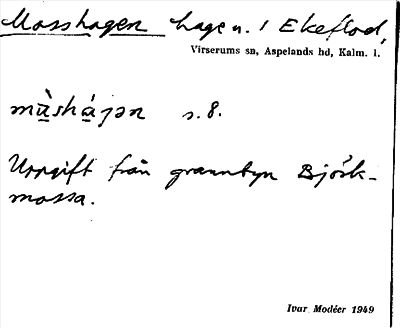 Mosshagen hage n. i Ekeflod,
Virserums sn, Aspelands hd, Kalm. l.
mùshájən s. 8.
Uppgift från grannbyn Björk-
mossa.
Ivar Modéer 1949